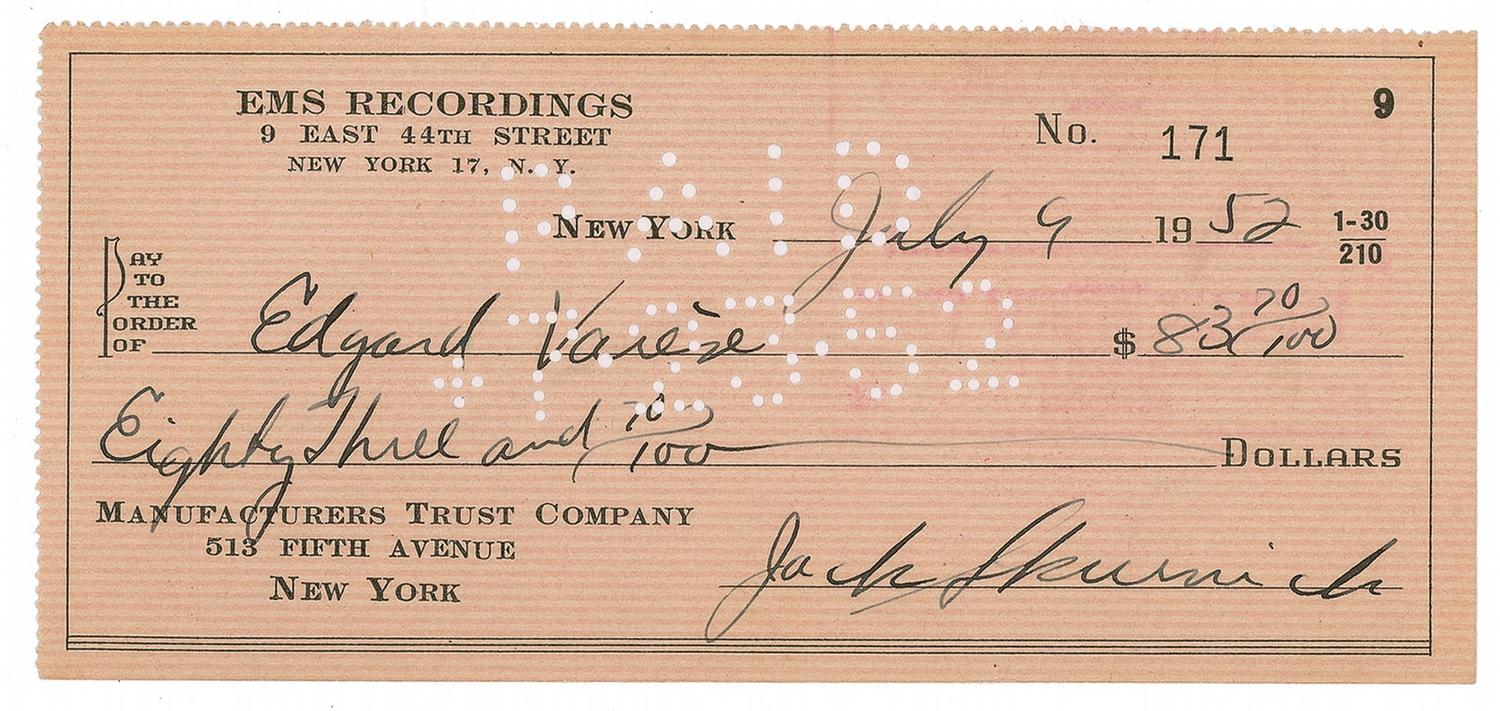 EMS RECORDINGS
9 EAST 44TH STREET
NEW YORK 17, N. Y.
9
No. 171
NEW YORK July 9 1952
1-30
210
PAID
PAY
TO
THE
ORDER
OF Edgard Varèse $ 83 70/100
Eighty Three and 70/100 DOLLARS
MANUFACTURERS TRUST COMPANY
513 FIFTH AVENUE
NEW YORK
Jack Skurnick